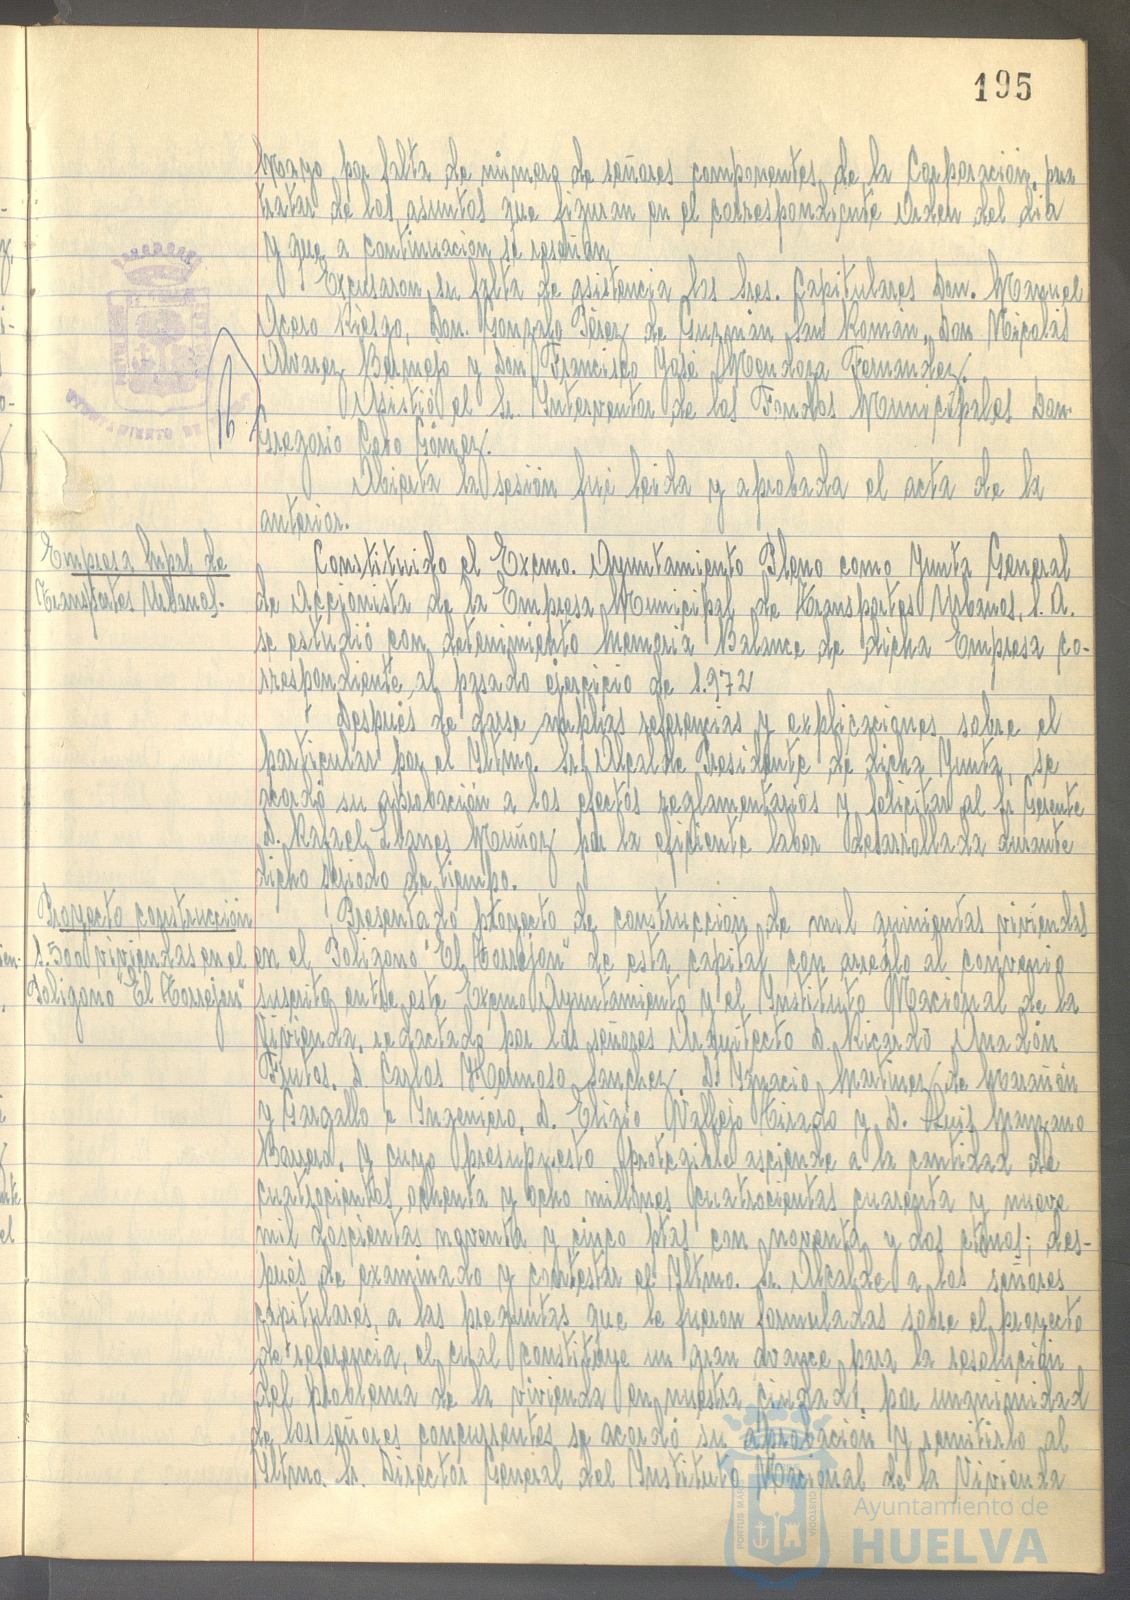 195
Mayo por falta de número de señores componentes de la Corporación, para
tratar de los asuntos que figuran en el correspondiente Orden del dia
y que a continuación se reseñan.
Excusaron su falta de asistencia los Sres. Capitulares Don. Manuel
Acero Riesgo, Don. Gonzalo Pérez de Guzmán San Román, Don Nicolás
Alvarez Bermejo y Don Francisco José Mendoza Fernandez.
Asistió el Sr. Interventor de los Fondos Municipales Don.
Gregorio Cero Gómez.
Abierta la sesión fué leida y aprobada el acta de la
anterior.
Empresa Mpal de
Transportes Urbanos.
Constituido el Excmo. Ayuntamiento Pleno como Junta General
de Accionista de la Empresa Municipal de Transportes Urbanos, S.A.
se estudió con detenimiento Memoria Balance de dicha Empresa co-
rrespondiente al pasado ejercicio de 1.972
Después de darse amplias referencias y explicaciones sobre el
particular por el Iltmo. Sr. Alcalde Presidente de dicha Junta, se
acordó su aprobación a los efectos reglamentarios y felicitar al Sr Gerente
D. Rafael Llanes Muñoz por la eficiente labor desarrollada durante
dicho periodo de tiempo.
Proyecto construcción
1.500 viviendas en el
Poligono "El Torrejon"
Presentado proyecto de construcción de mil quinientas viviendas
en el Poligono "El Torrejón" de esta capital, con arreglo al convenio
suscrito entre este Excmo Ayuntamiento y el Instituto Nacional de la
Vivienda, redactado por los señores Arquitecto D. Ricardo Anadón
Frutos, D. Carlos Hermoso Sanchez, D. Ignacio Martinez de Marañón
y Gargallo e Ingeniero, D. Eligio Vallejo Tirado y D. Luis Manzano
Barrero, y cuyo presupuesto protegible asciende a la cantidad de
cuatrocientos ochenta y ocho millones cuatrocientas cuarenta y nueve
mil doscientas noventa y cinco ptas con noventa y dos ctmos; des-
pués de examinado y contestar el Iltmo. Sr. Alcalde a los señores
capitulares, a las preguntas que le fueron formuladas sobre el proyecto
de referencia, el cual constituye un gran avance para la resolución
del problema de la vivienda en nuestra ciudad, por unanimidad
de los señores concurrentes se acordó su aprobación y remitirlo al
Iltmo. Sr. Director General del Instituto Nacional de la Vivienda
Ayuntamiento de
HUELVA